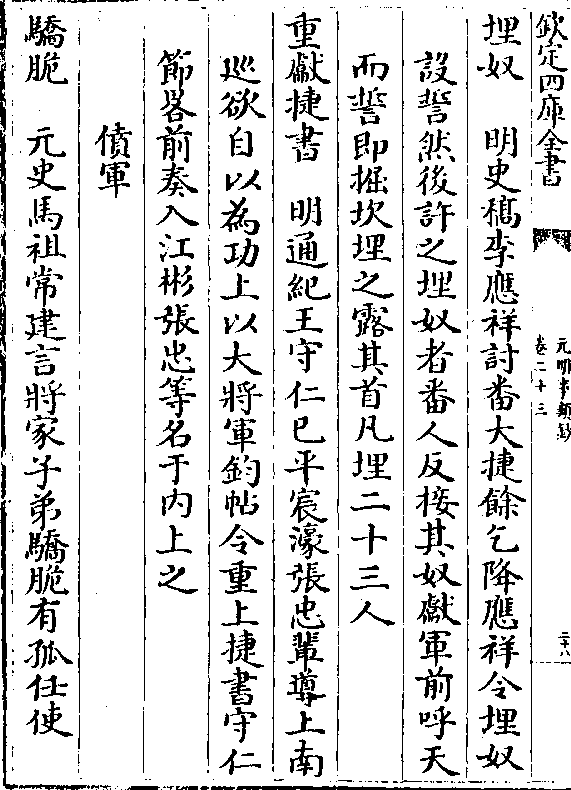 欽定四庫全書
元明事類鈔
卷二十三
二十八
埋奴　明史稿李應祥討番大捷餘乞降應祥令埋奴
設誓然後許之埋奴者番人反接其奴獻軍前呼天
而誓即掘坎埋之露其首凡埋二十三人
重獻捷書　明通紀王守仁已平宸濠張忠輩導上南
巡欲自以為功上以大將軍鈞帖令重上捷書守仁
節畧前奏入江彬張忠等名于内上之
僨軍
驕脆　元史馬祖常建言將家子弟驕脆有孤任使